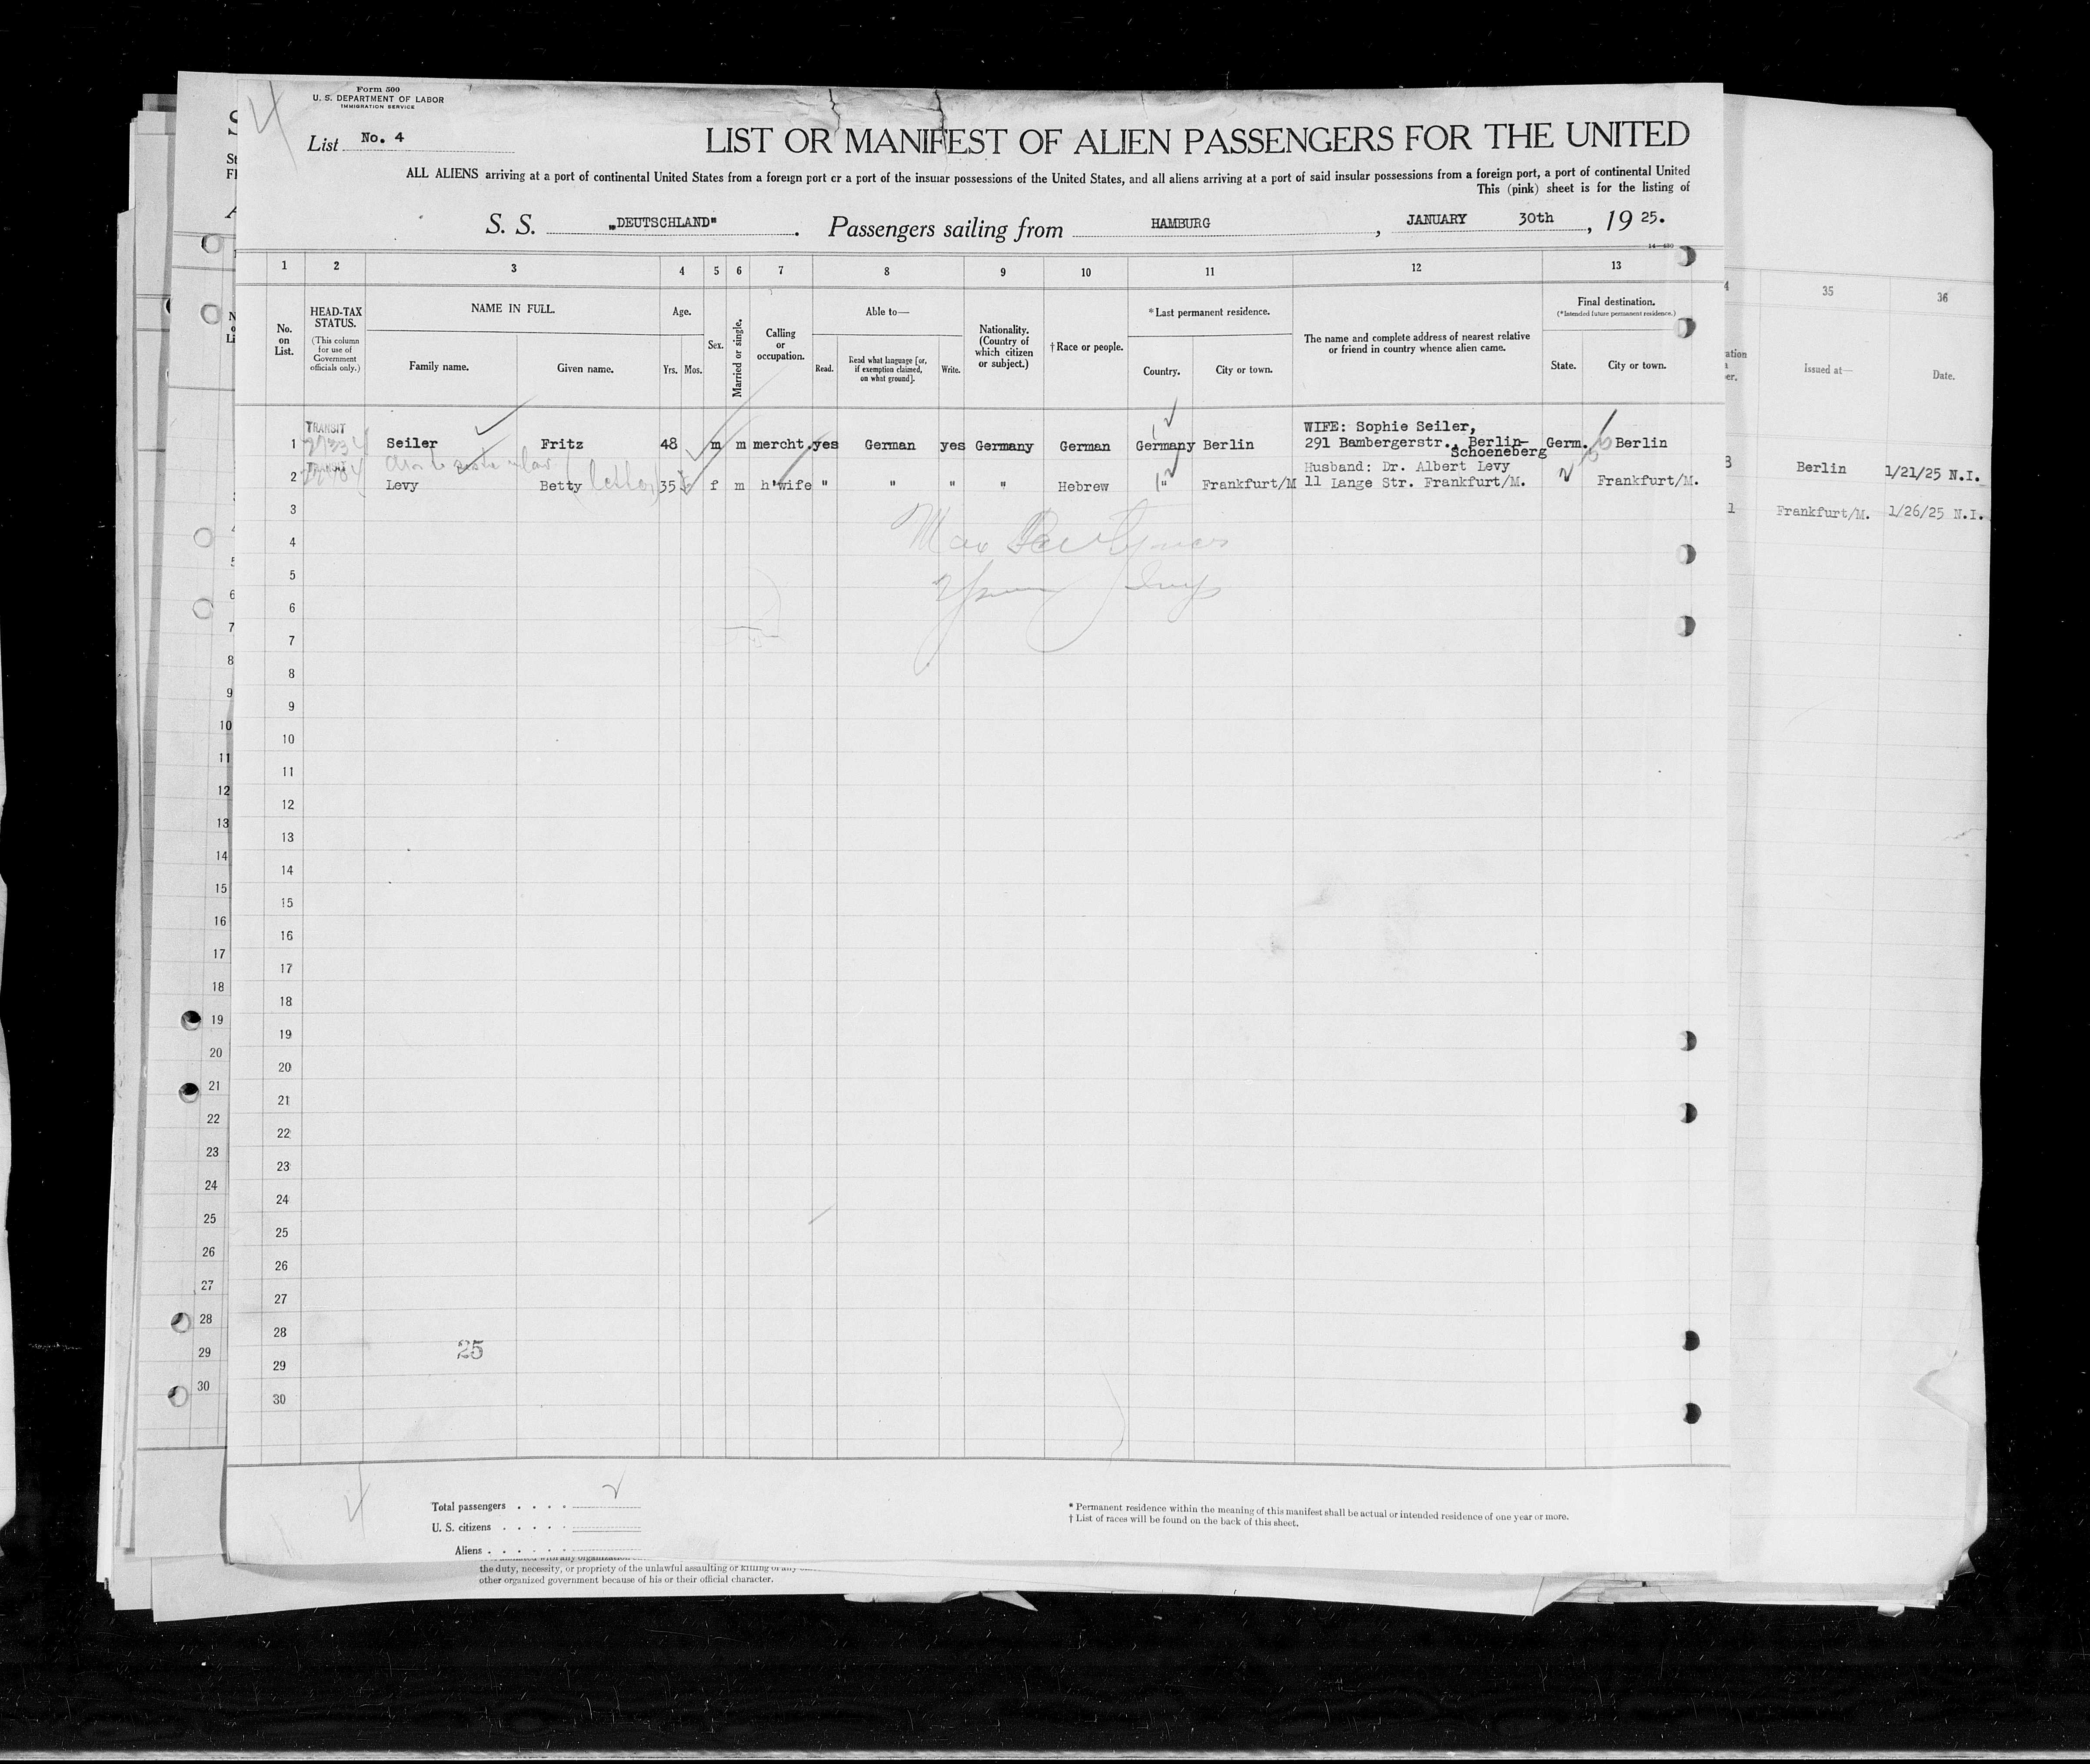 Form 500
U. S. DEPARTMENT OF LABOR
IMMIGRATION SERVICE
List No. 4
LIST OR MANIFEST OF ALIEN PASSENGERS FOR THE UNITED
ALL ALIENS arriving at a port of continental United States from a foreign port or a port of the insular possessions of the United States, and all aliens arriving at a port of said insular possessions from a foreign port, a port of continental United
This (pink) sheet is for the listing of
S. S. „DEUTSCHLAND". Passengers sailing from HAMBURG, JANUARY 30th, 1925.
1 2 3 4 5 6 7 8 9 10 11 12 13
35 36
No. on List.
HEAD-TAX STATUS.
(This column for use of Government officials only.)
NAME IN FULL.
Family name. Given name.
Age.
Yrs. Mos.
Sex.
Married or single.
Calling or occupation.
Able to—
Read. Read what language [or, if exemption claimed, on what ground]. Write.
Nationality. (Country of which citizen or subject.)
†Race or people.
*Last permanent residence.
Country. City or town.
The name and complete address of nearest relative or friend in country whence alien came.
Final destination.
(*Intended future permanent residence.)
State. City or town.
Issued at— Date.
TRANSIT
WIFE: Sophie Seiler,
1 Seiler Fritz 48 m m mercht. yes German yes Germany German Germany Berlin 291 Bambergerstr., Berlin- Germ. Berlin
Schoeneberg
Berlin 1/21/25 N.I.
TRANSIT
Husband: Dr. Albert Levy
2 Levy Betty 35 f m h'wife " " " " Hebrew " Frankfurt/M 11 Lange Str. Frankfurt/M. Frankfurt/M.
Frankfurt/M. 1/26/25 N.I.
3
4
5
6
7
8
9
10
11
12
13
14
15
16
17
18
19
20
21
22
23
24
25
26
27
28
25
29
30
Total passengers
U. S. citizens
Aliens
* Permanent residence within the meaning of this manifest shall be actual or intended residence of one year or more.
† List of races will be found on the back of this sheet.
the duty, necessity, or propriety of the unlawful assaulting or killing of any
other organized government because of his or their official character.